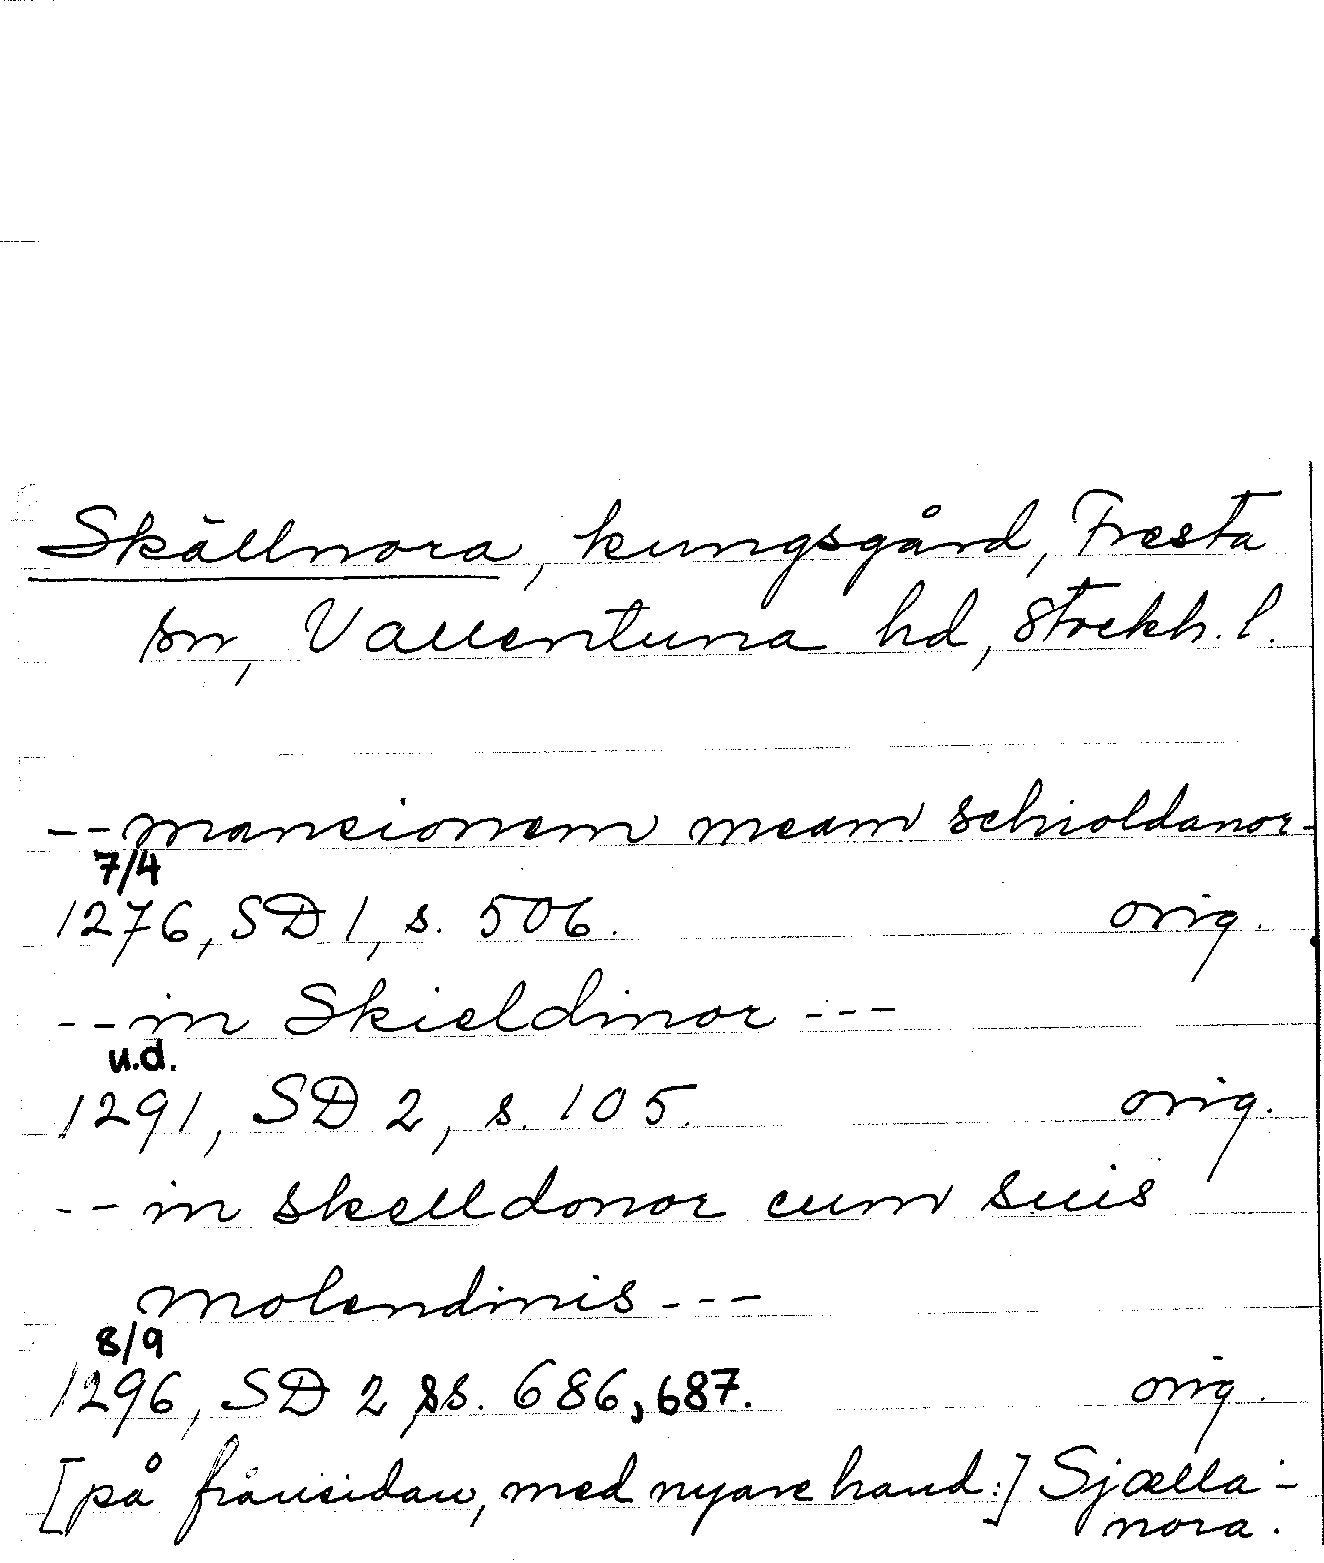 Skällnora, kungsgård, Fresta
sn, Vallentuna hd, Stockh. l.
-- mancionem meam schioldanor-
7/4
1276, SD 1, s. 506. orig.
-- in Skieldinor ---
u.d.
1291, SD 2, s. 105. orig.
-- in skelldonor cum suis
molendinis ---
8/9
1296, SD 2 ss. 686, 687. orig.
[på frånsidan, med nyare hand:] Sjælla-
nora.